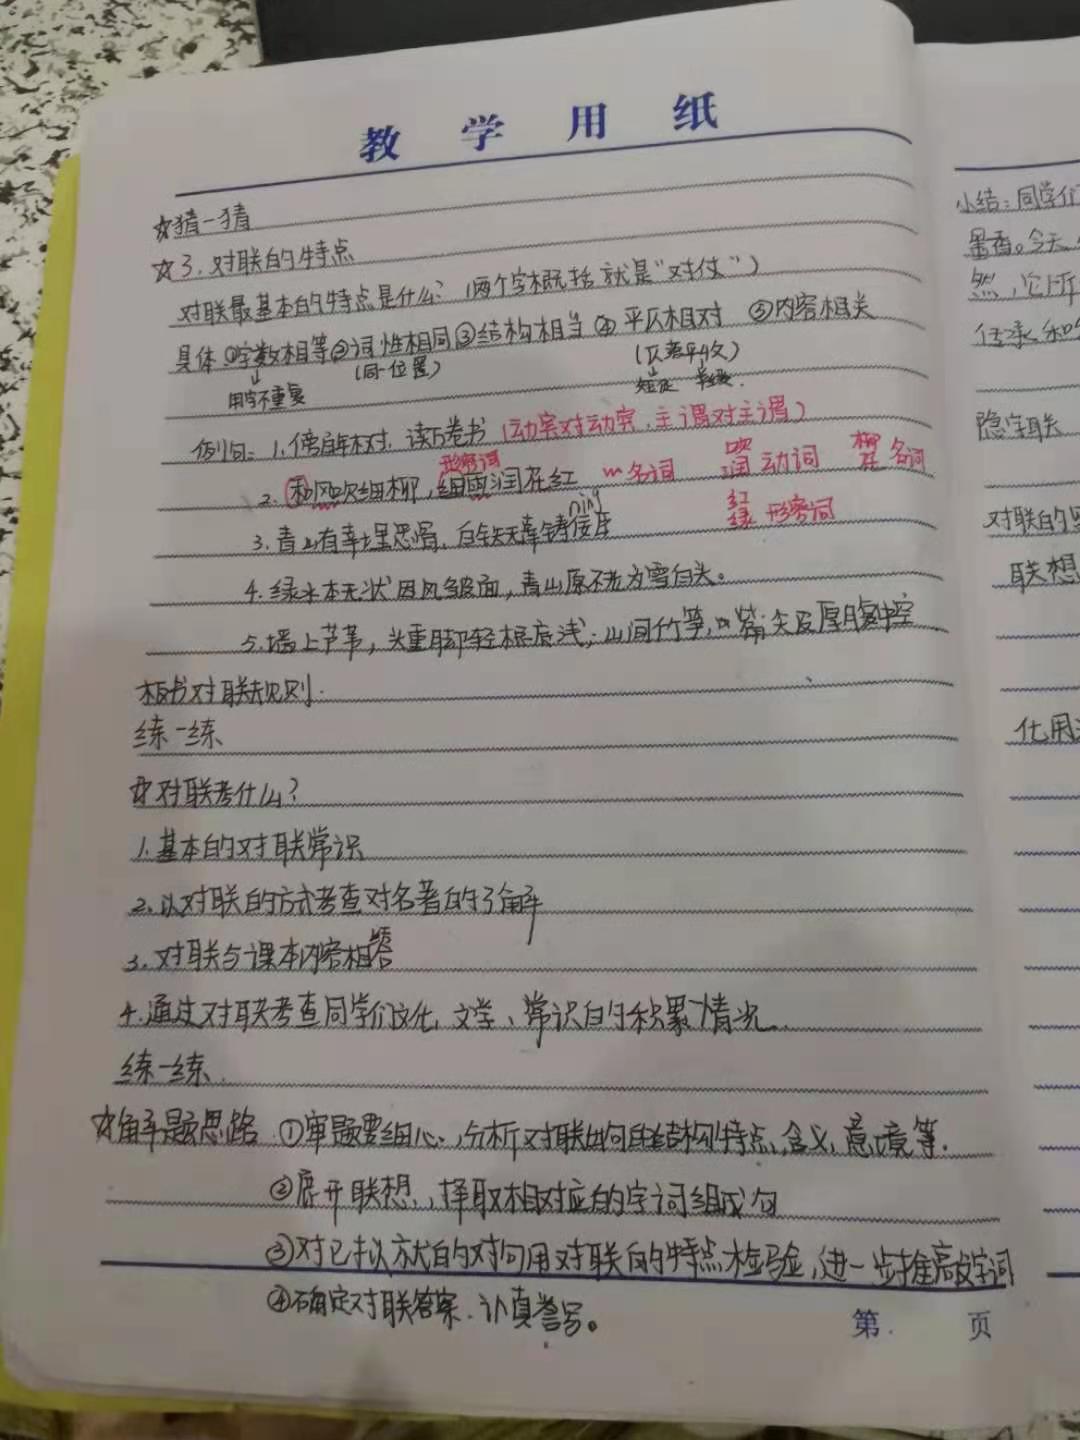 教学用纸
☆猜一猜
☆3.对联的特点
对联最基本的特点是什么?(两个字概括就是“对仗”)
具体:①字数相等②词性相同③结构相当④平仄相对 ⑤内容相关
用字不重复 (同一位置) (仄起平收)
例句:1.傍崖耕种,读万卷书 (动宾对动宾,主谓对主谓)
形容词
2.和风吹细柳,细雨润花红 名词 吹 润 动词 柳 花 名词
3.青山有幸埋忠骨,白铁无辜铸佞臣 ning 红 绿 形容词
4.绿水本无状因风皱面,青山原不老为雪白头。
5.墙上芦苇,头重脚轻根底浅;山间竹笋,嘴尖皮厚腹中空
板书对联规则:
练一练
☆对联考什么?
1.基本的对联常识
2.以对联的方式考查对名著的了解
3.对联与课本内容相结合
4.通过对联考查同学们文化、文学、常识的积累情况.
练一练.
☆解题思路 ①审题要细心,分析对联出句的结构特点,含义,意境等.
②展开联想,择取相对应的字词组成句
③对已拟就的对句用对联的特点检验,进一步推敲字词
④确定对联答案.认真誊写。
第 页
小结:同学们
墨香。今天
然,它所
传承和
隐字联
对联的
联想
化用